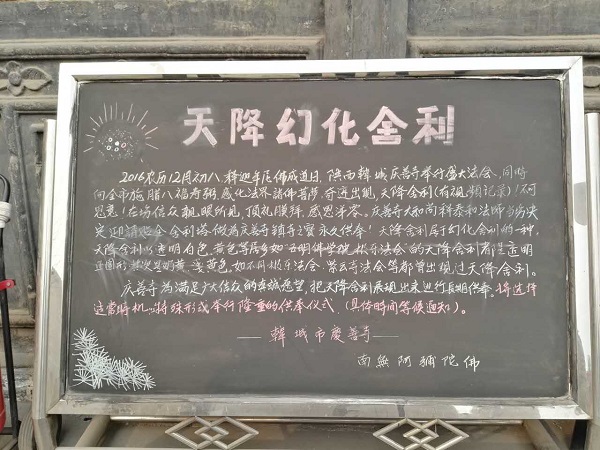 天降幻化舍利
2016农历12月初八,释迦牟尼佛成道日,陕西韩城庆善寺举行盛大法会,同时
向全市施腊八福寿粥,感化法界诸佛菩萨,奇迹出现,天降舍利(有视频记录)!不可
思意!在场信众亲眼所见,顶礼膜拜,感恩涕零。庆善寺大和尚释泰和法师当场决
定迎请些全舍利塔做为庆善寺镇寺之宝永久供奉!天降舍利属于幻化舍利的一种,
天降舍利以透明白色,黄色等居多如五明佛学院极乐法会的天降舍利都是透明
正圆形其次是奶黄,姜黄色,如不同极乐法会、法会等都曾出现过天降舍利。
庆善寺为满足广大信众的愿望,把天降舍利展现出来进行长期供奉。将选择
适当时机,将殊形式举行隆重的供奉仪式(具体时间等候通知)。
——韩城市庆善寺——
南無阿彌陀佛